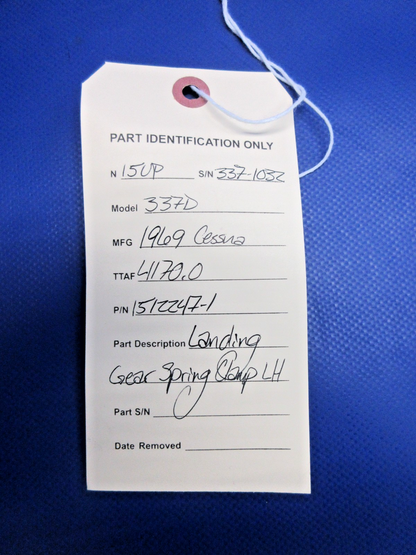 PART IDENTIFICATION ONLY
N 15UP S/N 337-1032
Model 337D
MFG 1969 Cessna
TTAF 4170.0
P/N 1512247-1
Part Description Landing
Gear Spring Clamp LH
Part S/N
Date Removed